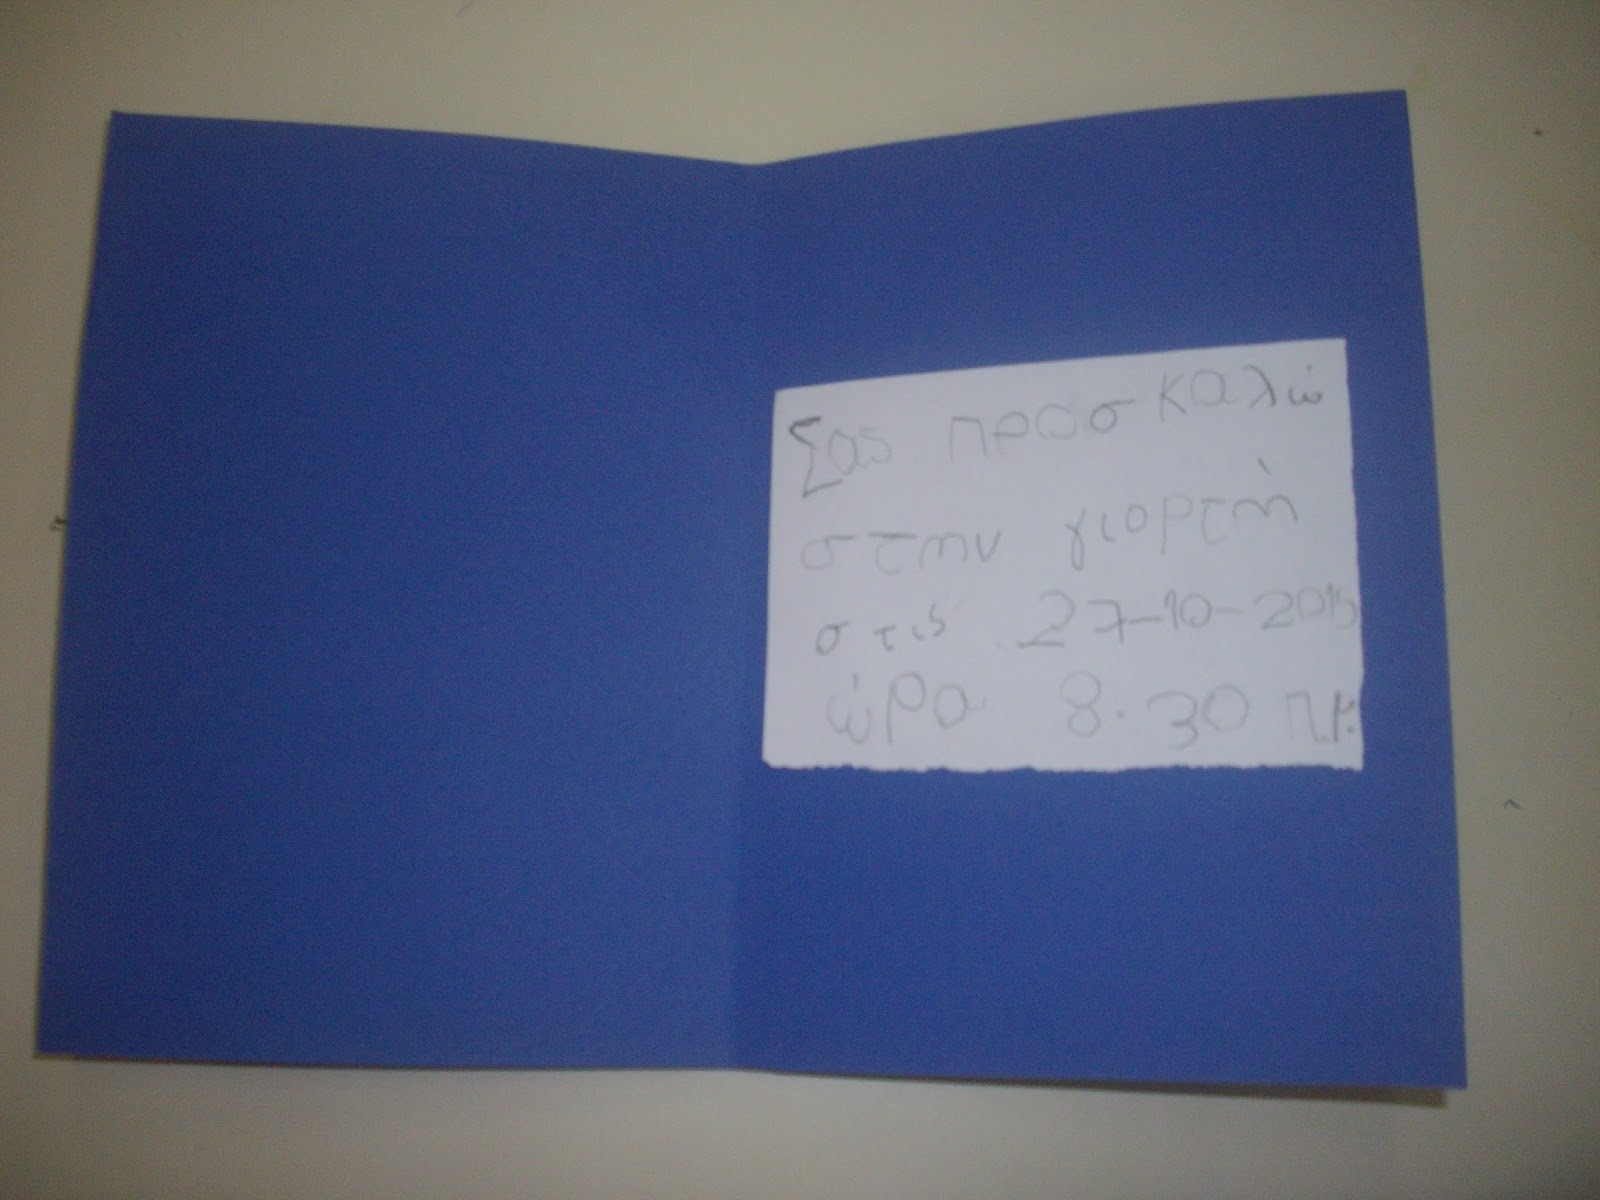 Σας προσκαλώ
στην γιορτή
στις 27-10-2015
ώρα 8.30 π.μ.